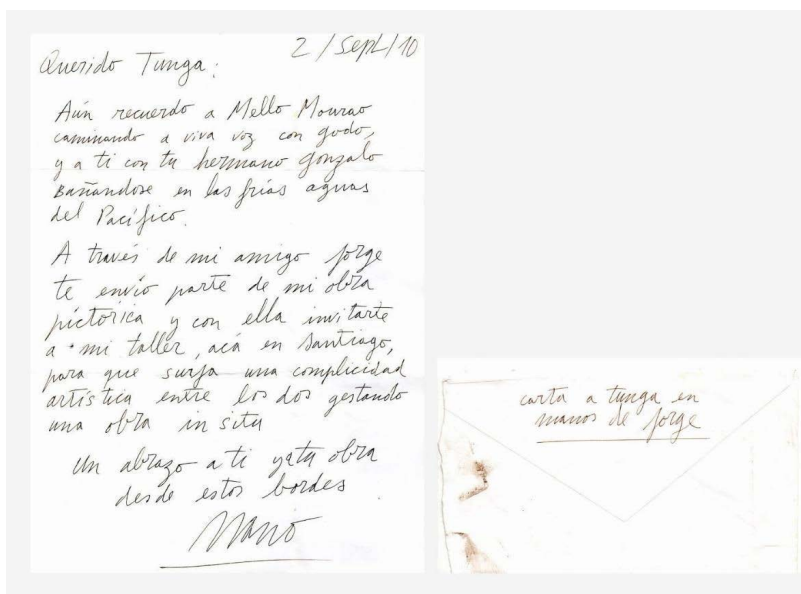 2/Sept/10
Querido Tunga:
Aún recuerdo a Mello Mourao
caminando a viva voz con godo,
y a ti con tu hermano gonzalo
Bañandose en las frías aguas
del Pacífico.
A través de mi amigo jorge
te envío parte de mi obra
pictorica y con ella invitarte
a mi taller, acá en Santiago,
para que surja una complicidad
artística entre los dos gestando
una obra in situ
Un abrazo a ti y a tu obra
desde estos bordes
Nano
carta a tunga en
manos de jorge